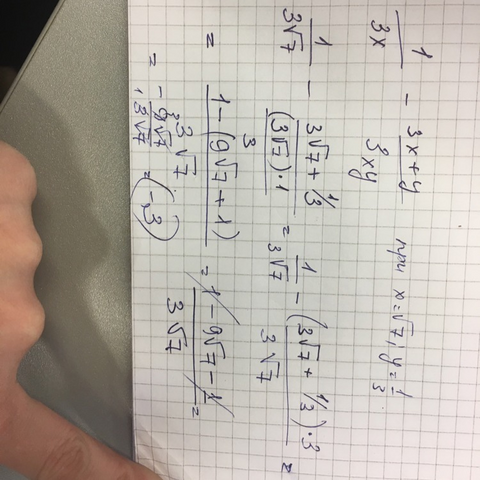 1/3x - 3x+y/3xy при x=√7, y=1/3
1/3√7 - 3√7+1/3/(3√7)·1/3 = 1/3√7 - (3√7+1/3)·3/3√7 =
= 1-(9√7+1)/3√7 = 1-9√7-1/3√7 =
= -9√7/3√7 = -3